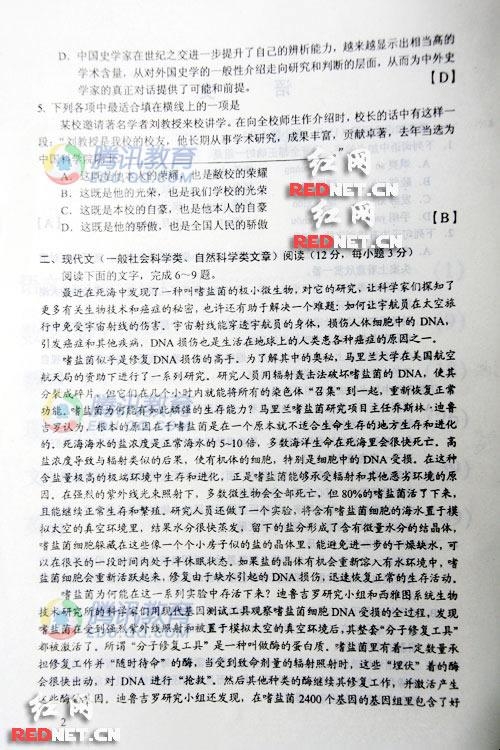 D. 中国史学家在世纪之交进一步提升了自己的辨析能力，越来越显示出相当高的
学术含量，从对外国史学的一般性介绍走向研究和判断的层面，从而为中外史
学家的真正对话提供了可能和前提。
【D】
5. 下列各项中最适合填在横线上的一项是
某校邀请著名学者刘教授来校讲学。在向全校师生作介绍时，校长的话中有这样一
段：“刘教授是我校的校友，他长期从事学术研究，成果丰富，贡献卓著，去年当选为
中国科学院
A. 这既是他本人的荣耀，也是敝校的荣耀
B. 这既是他的光荣，也是我们学校的光荣
C. 这既是本校的自豪，也是他本人的自豪
D. 这既是他的骄傲，也是全国人民的骄傲
【B】
二、现代文（一般社会科学类、自然科学类文章）阅读（12分，每小题3分）
阅读下面的文字，完成6～9题。
最近在死海中发现了一种叫嗜盐菌的极小微生物，对它的研究，让科学家们探知了
更多有关生物技术和癌症的秘密，也许还有助于解决一个难题：如何让宇航员在太空旅
行中免受宇宙射线的伤害。宇宙射线能穿透宇航员的身体，损伤人体细胞中的 DNA，
引发癌症和其他疾病，DNA 损伤也是生活在地球上的人类患各种癌症的原因之一。
嗜盐菌似乎是修复 DNA 损伤的高手。为了解其中的奥秘，马里兰大学在美国航空
航天局的资助下进行了一系列研究。研究人员用辐射轰击法破坏嗜盐菌的 DNA，使其
分裂成碎片，但它们在几个小时内就能将所有的染色体“召集”到一起，重新恢复正常
功能。嗜盐菌为何能有如此顽强的生存能力？马里兰嗜盐菌研究项目主任乔斯林·迪鲁
吉罗认为，根本的原因在于嗜盐菌是在一个原本就不适合生命生存的地方生存和进化
的。死海海水的盐浓度是正常海水的 5–10 倍，多数海洋生命在死海里会很快死亡。高
盐浓度导致与辐射类似的后果，使有机体的细胞，特别是细胞中的 DNA 受损。在这种
含盐量极高的极端环境中生存和进化，正是嗜盐菌能够承受辐射和其他恶劣环境的原
因。在强烈的紫外线光来照射下，多数微生物会全部死亡，但 80%的嗜盐菌活了下来，
且能继续正常生存和繁殖。研究人员还做了一个实验，将含有嗜盐菌的海水置于模
拟太空的真空环境里，结果水分很快蒸发，留下的盐分形成了含有微量水分的结晶体，
嗜盐菌细胞躲藏在这些像一个个小房子似的盐的晶体里，能避免进一步的干燥缺水，可
以在很长的一段时间内处于半休眠状态。如果盐的晶体有机会重新溶入有水环境中，嗜
盐菌细胞会重新活跃起来，修复由于缺水引起的 DNA 损伤，迅速恢复正常的生存活动。
嗜盐菌为何能在这一系列实验中存活下来？迪鲁吉罗研究小组和西雅图系统生物
技术研究所的科学家们用现代基因测试工具观察嗜盐菌细胞 DNA 受损的全过程，发现
嗜盐菌在受到强烈紫外线照射和被置于模拟太空的真空环境后，其整套“分子修复工具”
都被激活了。所谓“分子修复工具”是一种叫做酶的蛋白质。嗜盐菌里有着一定数量承
担修复工作并“随时待命”的酶，当受到致命剂量的辐射照射时，这些“埋伏”着的酶
会很快出动，对 DNA 进行“抢救”。然后其他种类的酶继续其修复工作，并激活产生
这些酶的基因。迪鲁吉罗研究小组还发现，在嗜盐菌 2400 个基因的基因组里包含了好
2
腾讯教育
EDU.QQ.COM
红网
REDNET.CN
红网
REDNET.CN
腾讯教育
腾讯教育
红网
REDNET.CN
红网
REDNET.CN